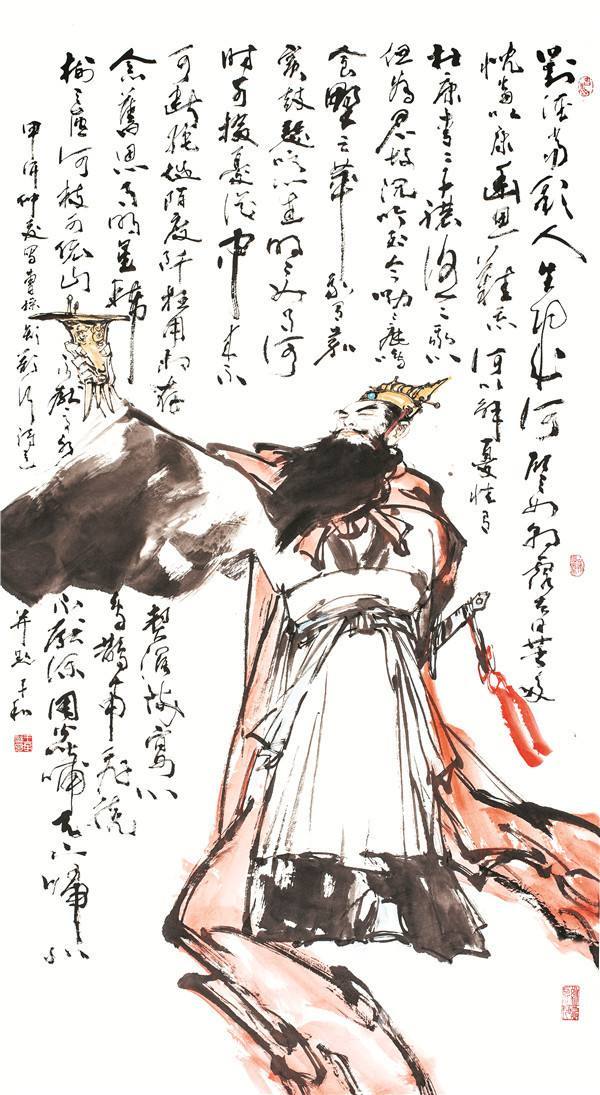 對酒當歌人生幾何譬如朝露去日苦多
慨當以慷幽思難忘何以解憂惟有
杜康青々子襟悠々我心
但為君故沉吟至今呦々鹿鳴
食野之苹我有嘉
賓鼓瑟吹笙明々如月何
時可掇憂從中來不
可斷絕越陌度阡枉用相存
契闊談讌心
念舊恩月明星稀
烏鵲南飛繞
樹三匝何枝可依山
不厭高水
不厭深周公吐哺天下歸心
甲午仲夏寫曹操短歌行詩意
并題